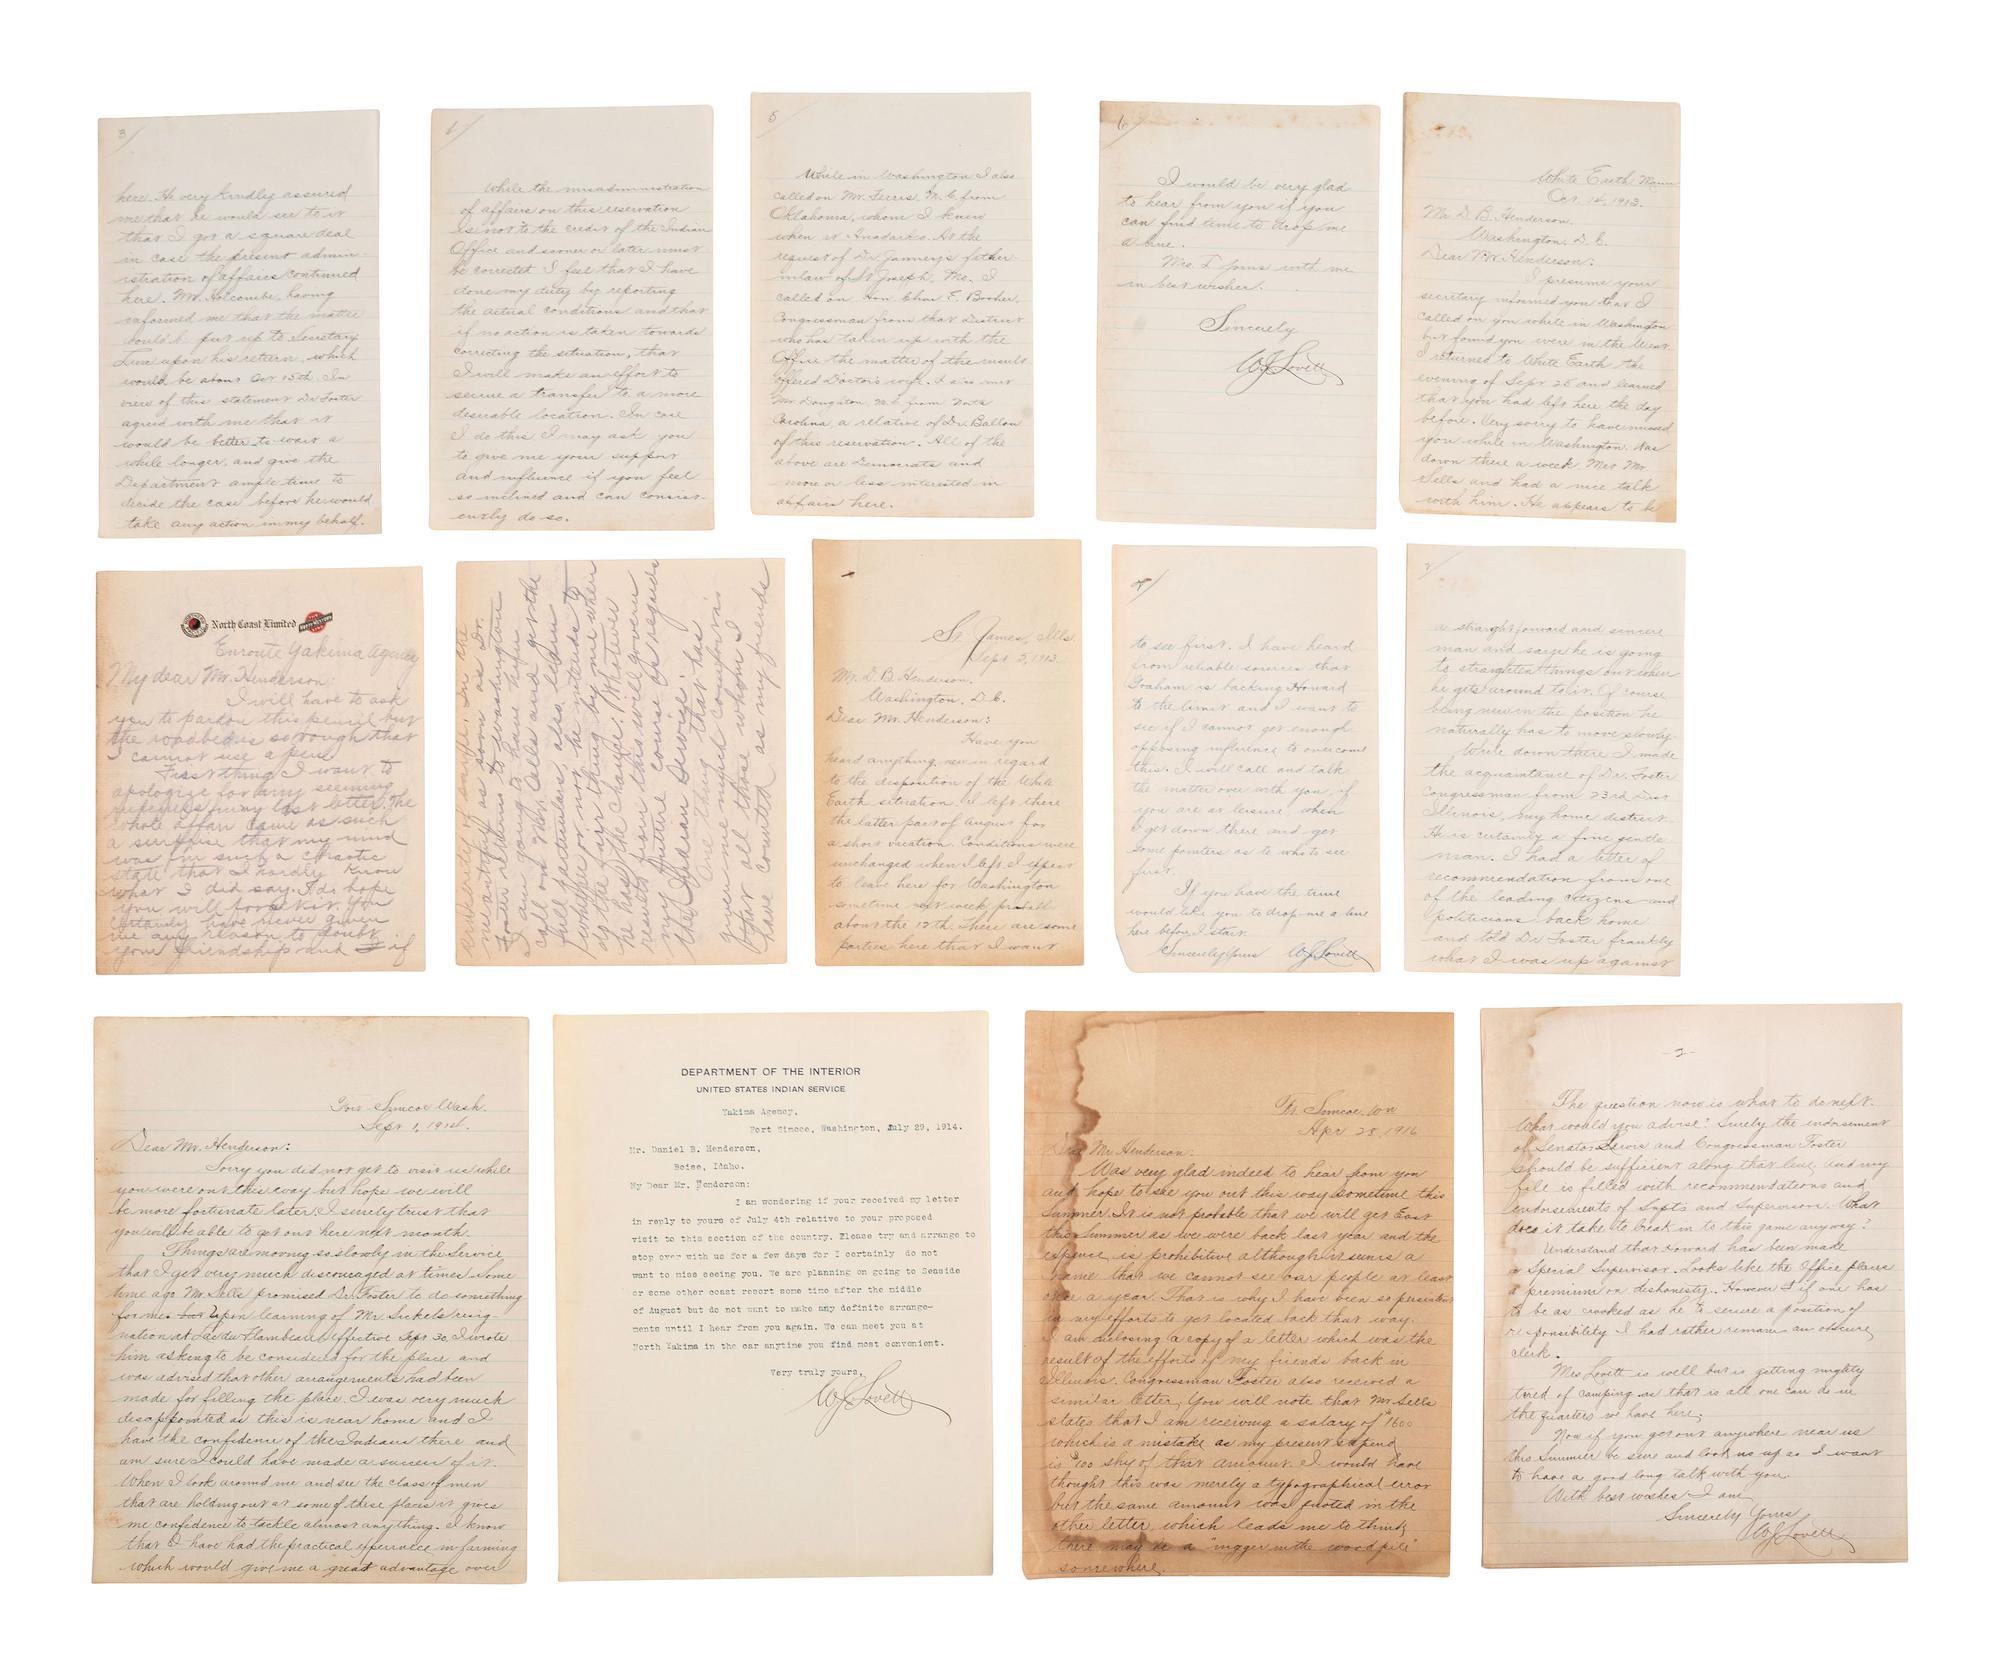 3
here. He very kindly assured
me that he would see to it
that I got a square deal
in case the present admin-
istration of affairs continued
here. Mr. Holcombe, having
informed me that the matter
would be put up to Secretary
Lane upon his return, which
would be about Oct 15th. In
view of this statement Dr Foster
agreed with me that it
would be better to wait a
while longer, and give the
Department ample time to
decide the case before he would
take any action in my behalf.
While the misadministration
of affairs on this reservation
is not to the credit of the Indian
Office and sooner or later must
be corrected I feel that I have
done my duty by reporting
the actual conditions and that
if no action is taken towards
correcting the situation, that
I will make an effort to
secure a transfer to a more
desirable location. In case
I do this I may ask you
to give me your support
and influence if you feel
so inclined and can consist-
ently do so.
5
While in Washington I also
called on Mr. Ferris, M.C. from
Oklahoma, whom I knew
when at Anadarko. At the
request of Dr Janney's father-
inlaw of St Joseph, Mo. I
called on Hon. E. Booher,
Congressman from that District
who has taken up with the
Office the matter of the insult
offered Doctor's wife. I also met
Mr. Doughton M.C. from North
Carolina, a relative of Dr. Ballou
of this reservation. All of the
above are Democrats and
more or less interested in
affairs here.
6
I would be very glad
to hear from you if you
can find time to drop me
a line.
Mrs. L joins with me
in best wishes.
Sincerely
WJLovett
White Earth Minn
Oct. 14, 1913.
Mr D. B. Henderson.
Washington, D. C.
Dear Mr. Henderson:
I presume your
secretary informed you that I
called on you while in Washington
but found you were in the West.
I returned to White Earth the
evening of Sept 25 and learned
that you had left here the day
before. Very sorry to have missed
you while in Washington. Was
down there a week. Met Mr.
Sells and had a nice talk
with him. He appears to be
North Coast Limited
Enroute Yakima Agency
My dear Mr. Henderson:
I will have to ask
you to pardon this pencil but
the roadbed is so rough that
I cannot use a pen.
First thing I want to
apologize for any seeming
rudeness in my last letter. The
whole affair came as such
a surprise that my mind
was in such a chaotic
state that I hardly know
what I did say. I do hope
you will forget it. You
certainly have never given
me any reason to doubt
your friendship and I if
sincerity of same. In the
meantime as soon as Dr.
Foster returns to Washington
I am going to have him
call on Mr. Sells and get the
full particulars, also learn
whether or not he intends to
do the fair thing by me when
he has the change. Whatever
results from this will govern
my future course as regards
the Indian Service.
One thing that has
given me much comfort is
that all those whom I
have counted as my friends
St. James, Ills.
Sept 5, 1913.
Mr. D. B. Henderson.
Washington, D.C.
Dear Mr. Henderson:
Have you
heard anything new in regard
to the disposition of the White
Earth situation. I left there
the latter part of August for
a short vacation. Conditions were
unchanged when I left. I expect
to leave here for Washington
sometime next week, probably
about the 12th. There are some
parties here that I want
2
to see first. I have heard
from reliable sources that
Graham is backing Howard
to the limit and I want to
see if I cannot get enough
opposing influence to overcome
this. I will call and talk
the matter over with you, if
you are at leisure, when
I get down there and get
some pointers as to who to see
first.
If you have the time
would like you to drop me a line
here before I start.
Sincerely Yours WJLovett
2
a straightforward and sincere
man and says he is going
to straighten things out when
he gets around to it. Of course
being new in the position he
naturally has to move slowly.
While down there I made
the acquaintance of Dr. Foster
Congressman from 23rd Dist
Illinois, my home district.
He is certainly a fine gentle-
man. I had a letter of
recommendation from one
of the leading citizens and
politicians back home
and told Dr Foster frankly
what I was up against
Fort Simcoe Wash.
Sept 1, 1914.
Dear Mr. Henderson:
Sorry you did not get to visit us while
you were out this way but hope we will
be more fortunate later. I surely trust that
you will be able to get out here next month.
Things are moving so slowly in the Service
that I get very much discouraged at times. Some
time ago Mr. Sells promised Dr. Foster to do something
for me. but Upon learning of Mr Sickels resig-
nation at Lac du Flambeau, effective Sept 30, I wrote
him asking to be considered for the place and
was advised that other arrangements had been
made for filling the place. I was very much
disappointed as this is near home and I
have the confidence of the Indians there and
am sure I could have made a success of it.
When I look around me and see the class of men
that are holding out at some of these places it gives
me confidence to tackle almost anything. I know
that I have had the practical experience in farming
which would give me a great advantage over
DEPARTMENT OF THE INTERIOR
UNITED STATES INDIAN SERVICE
Yakima Agency,
Fort Simcoe, Washington, July 29, 1914.
Mr. Daniel B. Henderson,
Boise, Idaho.
My Dear Mr. Henderson:
I am wondering if your received my letter
in reply to yours of July 4th relative to your proposed
visit to this section of the country. Please try and arrange to
stop over with us for a few days for I certainly do not
want to miss seeing you. We are planning on going to Seaside
or some other coast resort some time after the middle
of August but do not want to make any definite arrange-
ments until I hear from you again. We can meet you at
North Yakima in the car anytime you find most convenient.
Very truly yours,
WJLovett
Ft. Simcoe, Wn
Apr 28, 1916
Dear Mr Henderson:
Was very glad indeed to hear from you
and hope to see you out this way sometime this
Summer. It is not probable that we will get East
this Summer as we were back last year and the
expense is prohibitive although it seems a
shame that we cannot see our people at least
once a year. That is why I have been so persistent
in my efforts to get located back that way.
I am enclosing a copy of a letter which was the
result of the efforts of my friends back in
Illinois. Congressman Foster also received a
similar letter. You will note that Mr Sells
states that I am receiving a salary of $1600
which is a mistake as my present stipend
is $400 shy of that amount. I would have
thought this was merely a typographical error
but the same amount was quoted in the
other letter, which leads me to think
there may be a "nigger in the woodpile"
somewhere.
-2-
The question now is what to do next.
What would you advise? Surely the endorsement
of Senator Lewis and Congressman Foster
should be sufficient along that line, and my
file is filled with recommendations and
endorsements of Supts and Supervisors. What
does it take to break in to this game anyway?
Understand that Howard has been made
a Special Supervisor. Looks like the Office places
a premium on dishonesty. However if one has
to be as crooked as he to secure a position of
responsibility I had rather remain an obscure
clerk.
Mrs Lovett is well but is getting mighty
tired of camping as that is all one can do in
the quarters we have here.
Now if you get out anywhere near us
this Summer be sure and look us up as I want
to have a good long talk with you.
With best wishes I am
Sincerely Yours
WJLovett